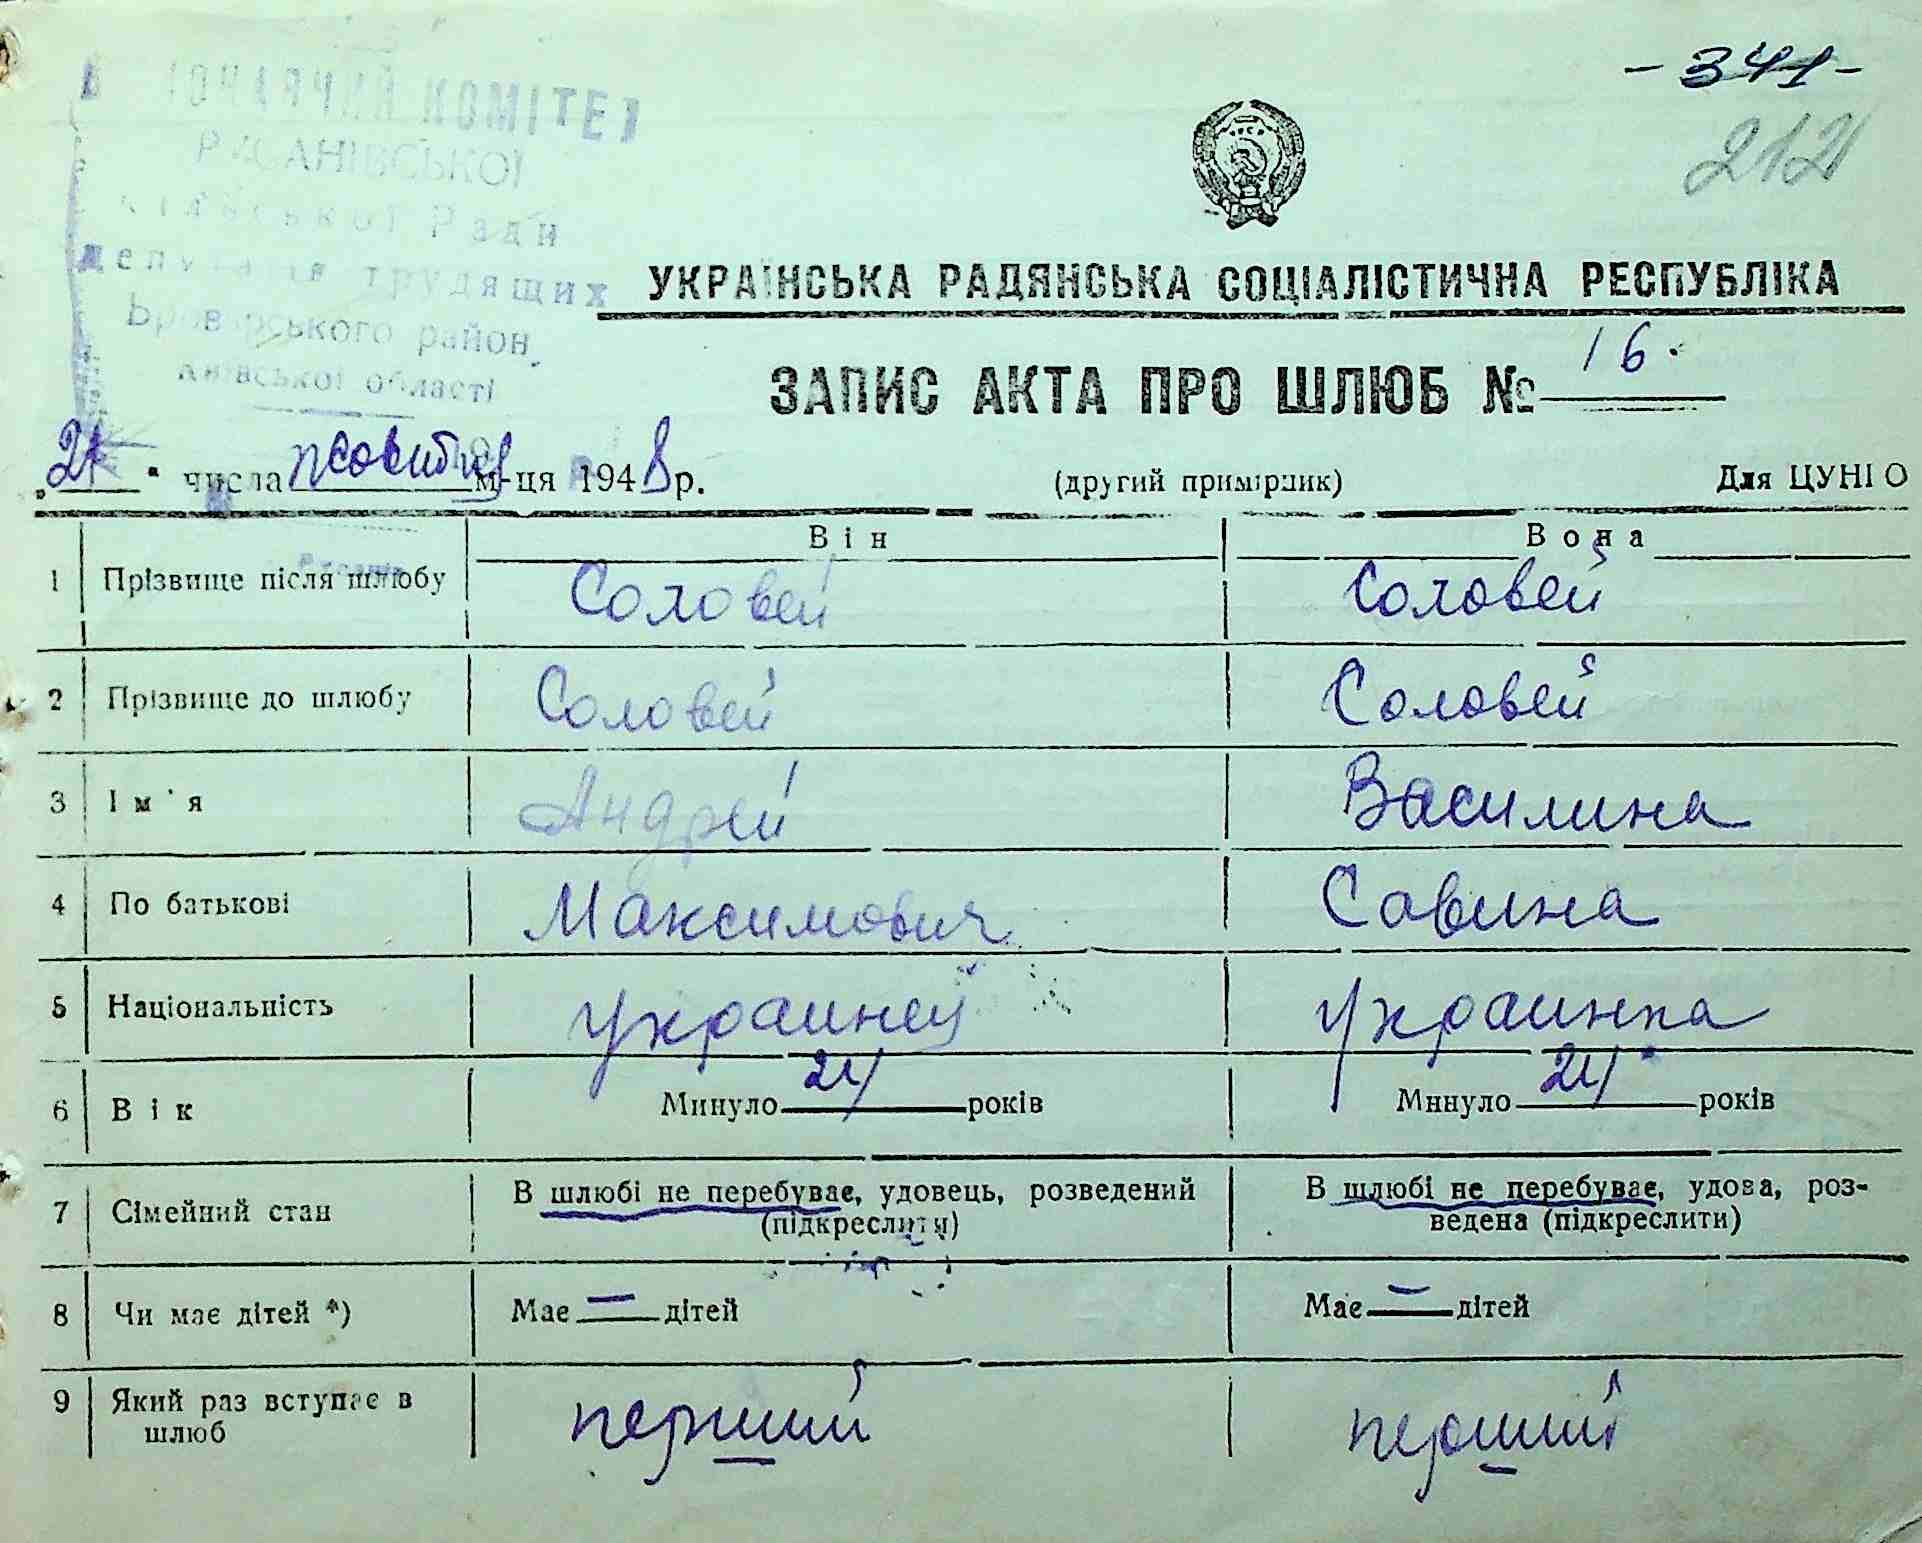 - 341 -
212
КОМІТЕТ
РУСАНІВСЬКОЇ
Ради
депутатів трудящих
Броварського район.
Київської області
УКРАЇНСЬКА РАДЯНСЬКА СОЦІАЛІСТИЧНА РЕСПУБЛІКА
ЗАПИС АКТА ПРО ШЛЮБ № 16.
„ " числа м-ця 1948 р. (другий примірник) Для ЦУНГО
Він Вона
1 Прізвище після шлюбу Соловей Соловей
2 Прізвище до шлюбу Соловей Соловей
3 Ім'я Андрей Василина
4 По батькові Максимович Савина
5 Національність украинец украинка
6 Вік Минуло 24 років Минуло 24 років
7 Сімейний стан В шлюбі не перебуває, удовець, розведений В шлюбі не перебуває, удова, роз-
(підкреслити) ведена (підкреслити)
8 Чи має дітей *) Має — дітей Має — дітей
9 Який раз вступає в перший перший
шлюб